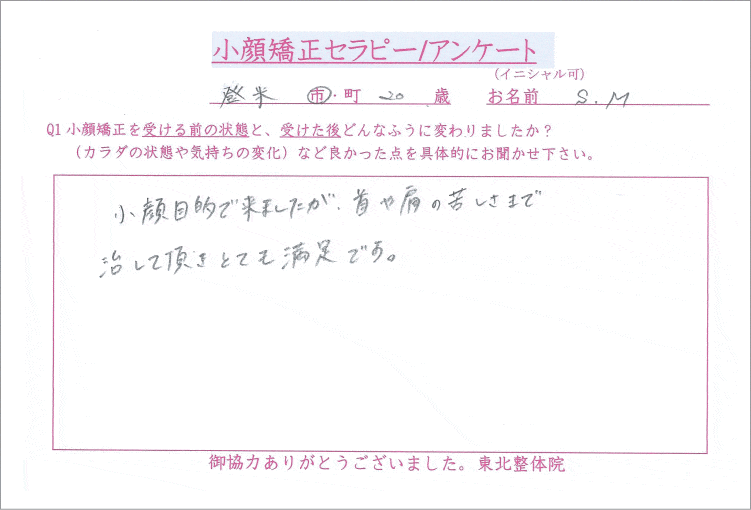 小顔矯正セラピー/アンケート
(イニシャル可)
登米 市・町 20 歳 お名前 S.M
Q1小顔矯正を受ける前の状態と、受けた後どんなふうに変わりましたか？
（カラダの状態や気持ちの変化）など良かった点を具体的にお聞かせ下さい。
小顔目的で来ましたが、首や肩の苦しさまで
治して頂きとても満足です。
御協力ありがとうございました。東北整体院